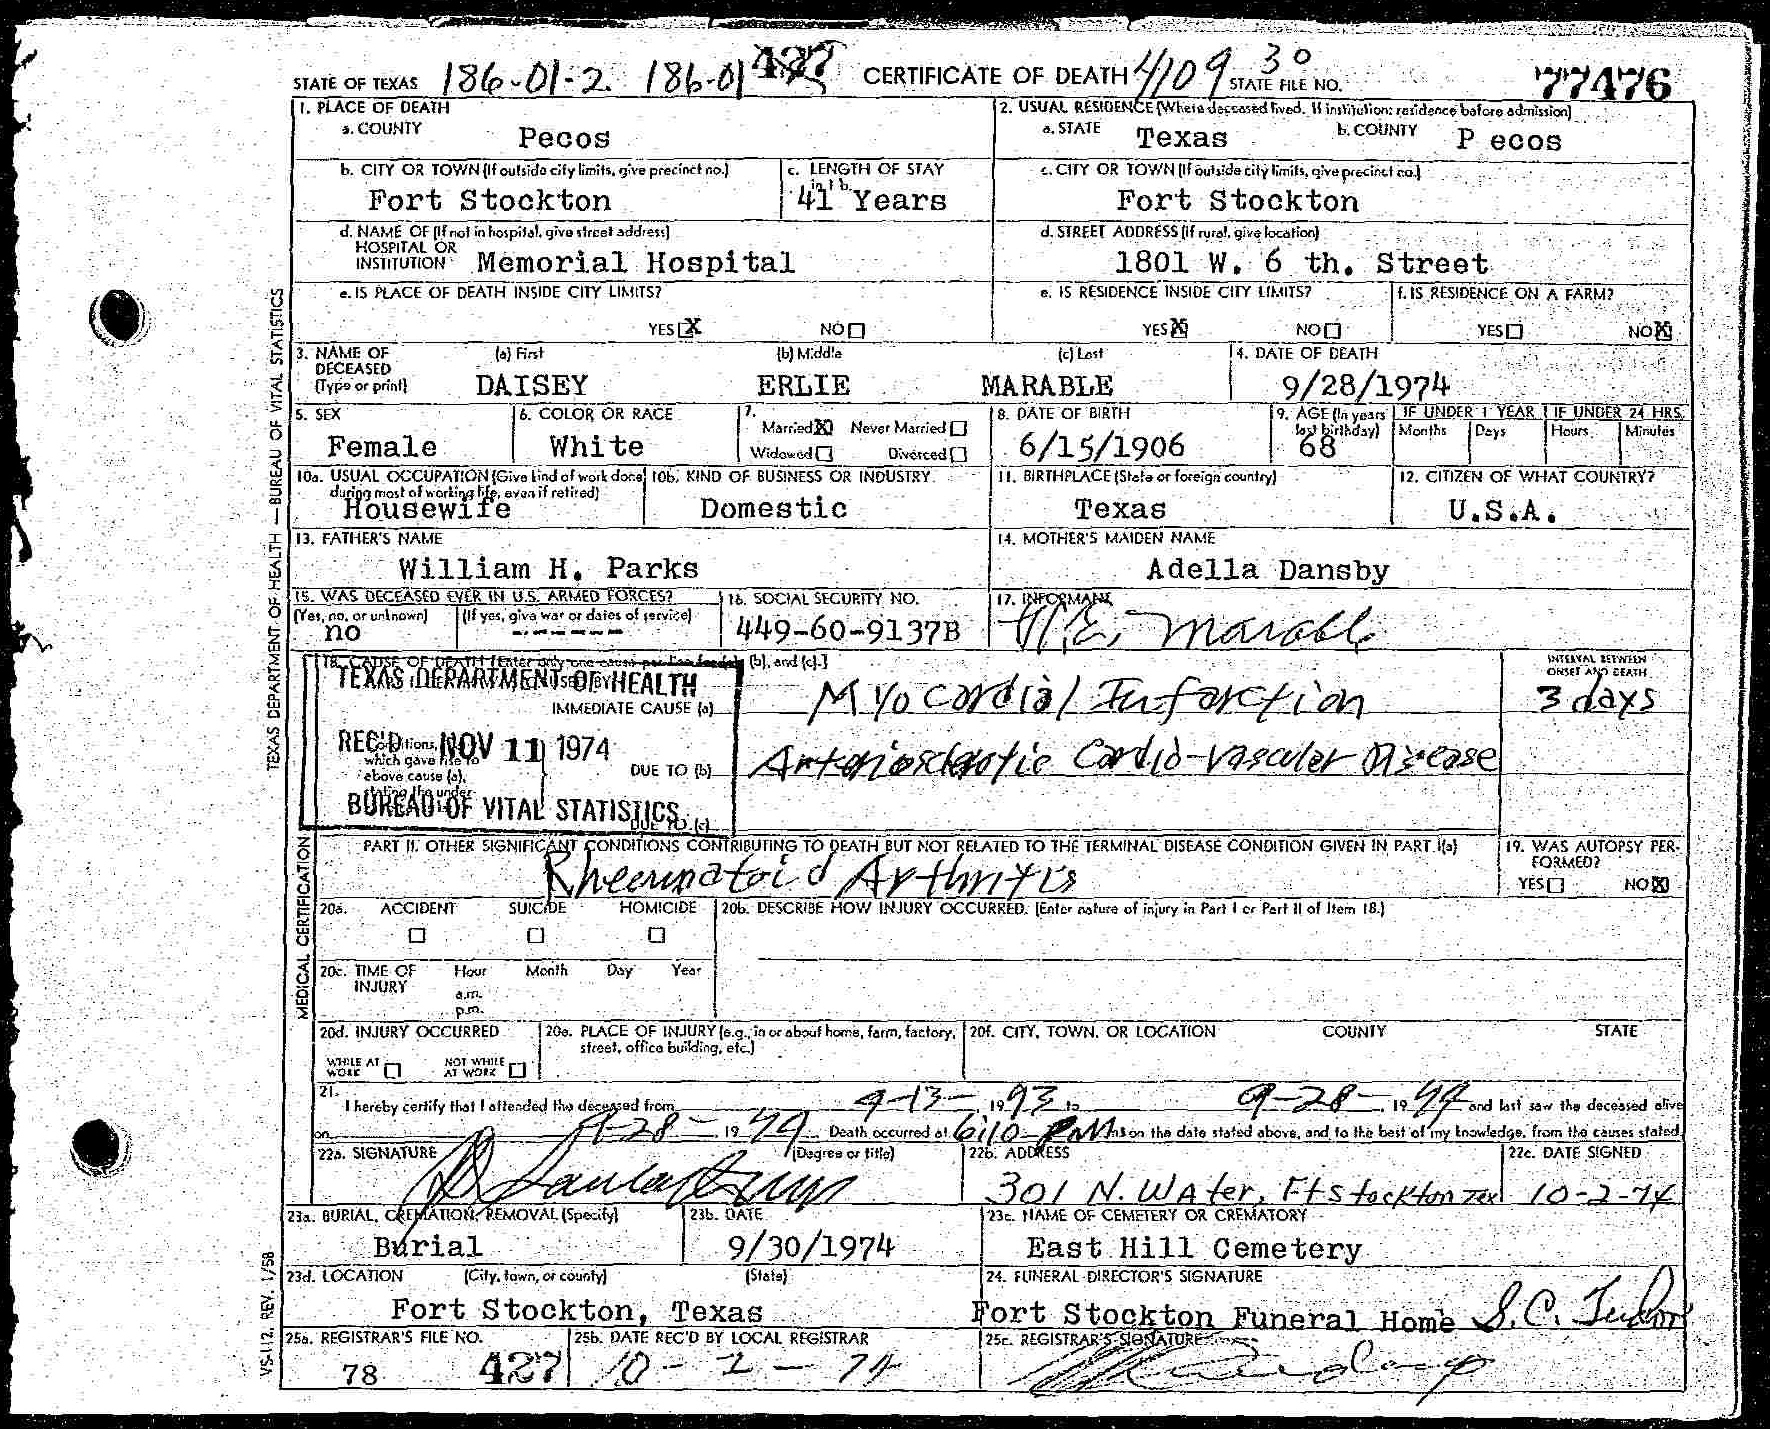 STATE OF TEXAS 186-01-2 186-01 427 CERTIFICATE OF DEATH 4109 30 STATE FILE NO. 77476
1. PLACE OF DEATH
a. COUNTY
Pecos
2. USUAL RESIDENCE (Where deceased lived. If institution: residence before admission)
a. STATE Texas b. COUNTY P ecos
b. CITY OR TOWN (If outside city limits, give precinct no.)
Fort Stockton
c. LENGTH OF STAY
in 1 b.
41 Years
c. CITY OR TOWN (If outside city limits, give precinct no.)
Fort Stockton
d. NAME OF (If not in hospital, give street address)
HOSPITAL OR
INSTITUTION Memorial Hospital
d. STREET ADDRESS (If rural, give location)
1801 W. 6 th. Street
e. IS PLACE OF DEATH INSIDE CITY LIMITS?
YES X NO
e. IS RESIDENCE INSIDE CITY LIMITS?
YES X NO
f. IS RESIDENCE ON A FARM?
YES NO X
3. NAME OF
DECEASED
(Type or print)
(a) First (b) Middle (c) Last
DAISEY ERLIE MARABLE
4. DATE OF DEATH
9/28/1974
5. SEX
Female
6. COLOR OR RACE
White
7.
Married X Never Married
Widowed Divorced
8. DATE OF BIRTH
6/15/1906
9. AGE (In years
last birthday)
68
IF UNDER 1 YEAR IF UNDER 24 HRS.
Months Days Hours Minutes
10a. USUAL OCCUPATION (Give kind of work done
during most of working life, even if retired)
Housewife
10b. KIND OF BUSINESS OR INDUSTRY
Domestic
11. BIRTHPLACE (State or foreign country)
Texas
12. CITIZEN OF WHAT COUNTRY?
U.S.A.
13. FATHER'S NAME
William H. Parks
14. MOTHER'S MAIDEN NAME
Adella Dansby
15. WAS DECEASED EVER IN U.S. ARMED FORCES?
(Yes, no, or unknown) (If yes, give war or dates of service)
no ------
16. SOCIAL SECURITY NO.
449-60-9137B
17. INFORMANT
Marable
18. CAUSE OF DEATH [Enter only one cause per line for (a), (b), and (c).]
TEXAS DEPARTMENT OF HEALTH
REC'D NOV 11 1974
BUREAU OF VITAL STATISTICS
IMMEDIATE CAUSE (a) Myocardial Infarction
INTERVAL BETWEEN
ONSET AND DEATH
3 days
which gave rise to
above cause (a),
stating the under-
DUE TO (b) Arteriosclerotic Cardio-vascular Disease
DUE TO (c)
PART II. OTHER SIGNIFICANT CONDITIONS CONTRIBUTING TO DEATH BUT NOT RELATED TO THE TERMINAL DISEASE CONDITION GIVEN IN PART I(a)
Rheumatoid Arthritis
19. WAS AUTOPSY PER-
FORMED?
YES NO X
20a. ACCIDENT SUICIDE HOMICIDE
20b. DESCRIBE HOW INJURY OCCURRED. (Enter nature of injury in Part I or Part II of Item 18.)
20c. TIME OF
INJURY
Hour Month Day Year
a.m.
p.m.
20d. INJURY OCCURRED
WHILE AT
WORK
NOT WHILE
AT WORK
20e. PLACE OF INJURY (e.g., in or about home, farm, factory,
street, office building, etc.)
20f. CITY, TOWN, OR LOCATION COUNTY STATE
21.
I hereby certify that I attended the deceased from 9-13- 1973 to 9-28- 1974 and last saw the deceased alive
on 9-28- 1974 Death occurred at 6:10 P.M. on the date stated above, and to the best of my knowledge, from the causes stated.
22a. SIGNATURE (Degree or title)
22b. ADDRESS
301 N. Water, Ft Stockton Tex
22c. DATE SIGNED
10-2-74
23a. BURIAL, CREMATION, REMOVAL (Specify)
Burial
23b. DATE
9/30/1974
23c. NAME OF CEMETERY OR CREMATORY
East Hill Cemetery
23d. LOCATION (City, town, or county) (State)
Fort Stockton, Texas
24. FUNERAL DIRECTOR'S SIGNATURE
Fort Stockton Funeral Home S.C.
25a. REGISTRAR'S FILE NO.
78 427
25b. DATE REC'D BY LOCAL REGISTRAR
10-2-74
25c. REGISTRAR'S SIGNATURE
TEXAS DEPARTMENT OF HEALTH — BUREAU OF VITAL STATISTICS
MEDICAL CERTIFICATION
VS-112, REV. 1/58